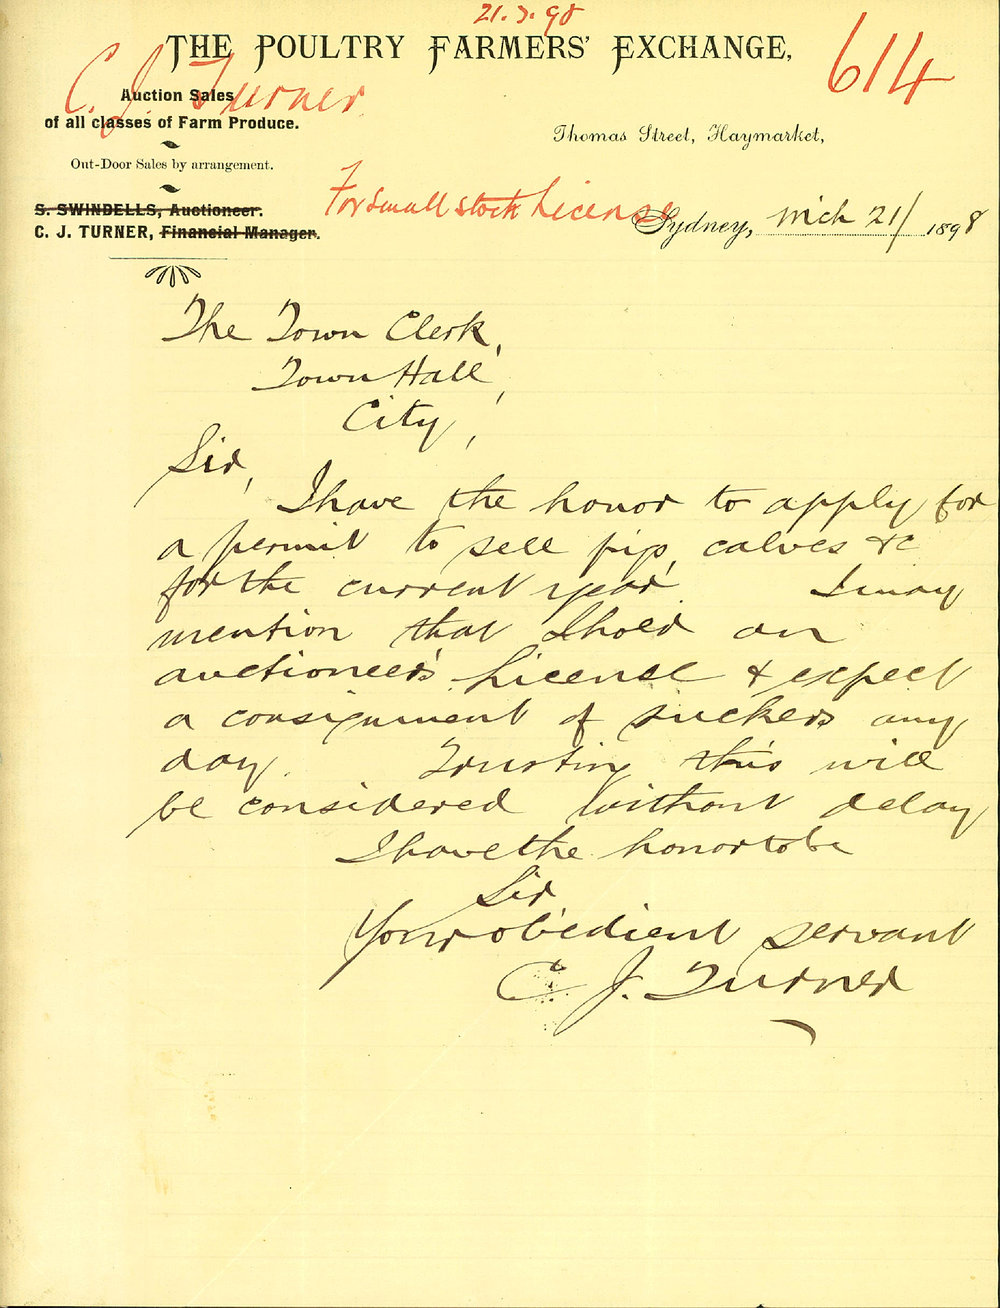 21.3.98
THE POULTRY FARMERS' EXCHANGE,
614
C. J. Turner
Auction Sales
of all classes of Farm Produce.
Thomas Street, Haymarket,
Out-Door Sales by arrangement.
For small stock License
S. SWINDELLS, Auctioneer.
C. J. TURNER, Financial Manager.
Sydney, Mch 21/ 1898
The Town Clerk,
Town Hall,
City,
Sir,
I have the honor to apply for
a permit to sell pigs, calves &c
for the current year. I may
mention that I hold an
auctioneer's License & expect
a consignment of suckers any
day. Trusting this will
be considered without delay
I have the honor to be
Sir
Your obedient servant
C J. Turner